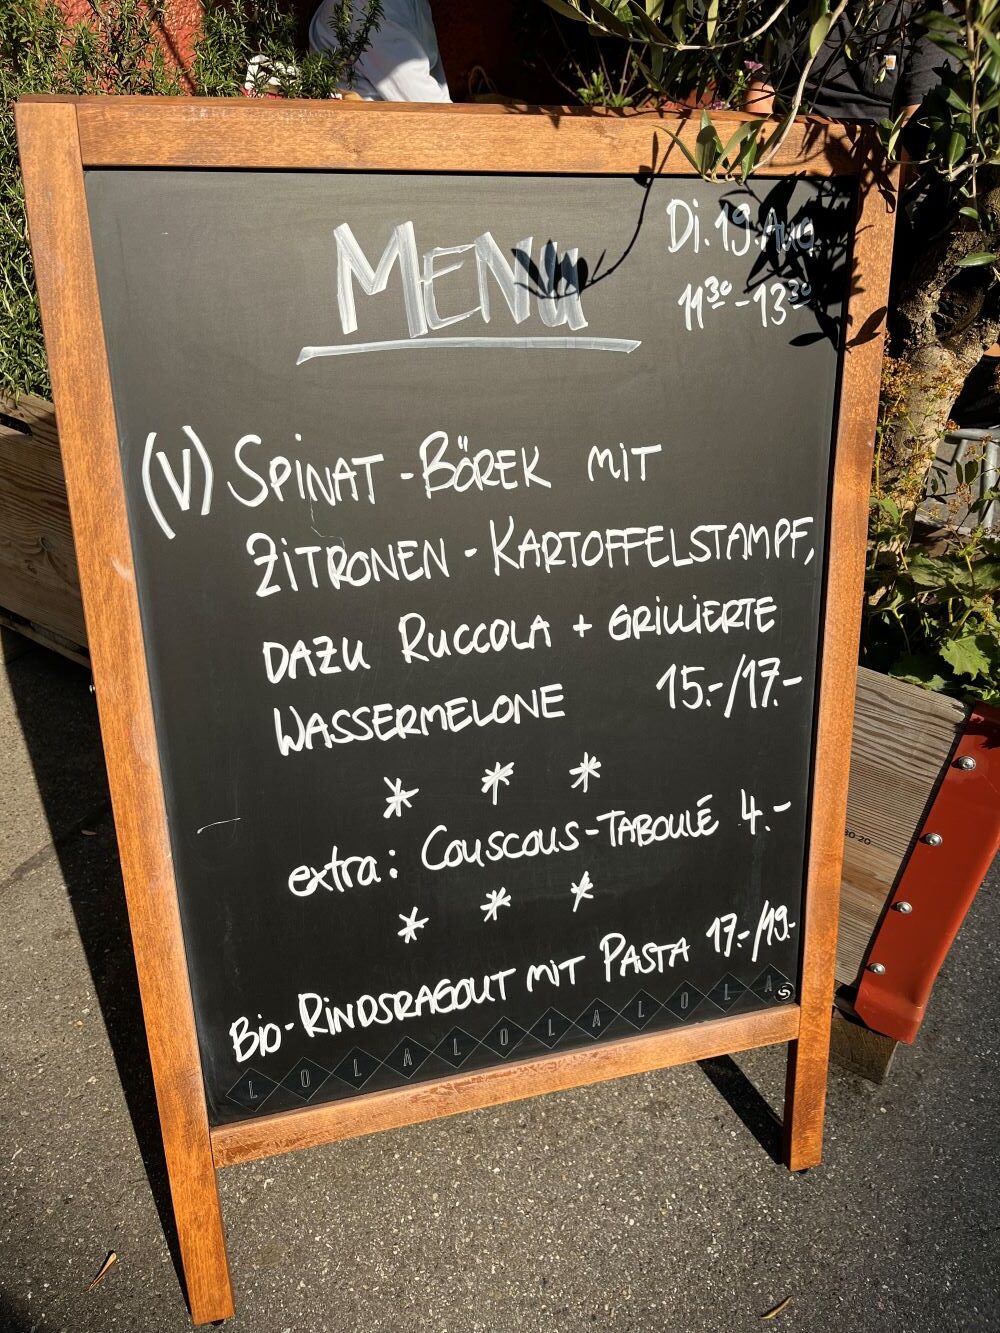 MENU
Di. 19. Aug.
11³⁰-13³⁰
(V) SPINAT-BÖREK MIT
ZITRONEN-KARTOFFELSTAMPF,
DAZU RUCCOLA + GRILLIERTE
WASSERMELONE 15.-/17.-
* * *
extra: COUSCOUS-TABOULÉ 4.-
* * *
BIO-RINDSRAGOUT MIT PASTA 17.-/19.-
LOLALOLALOLA